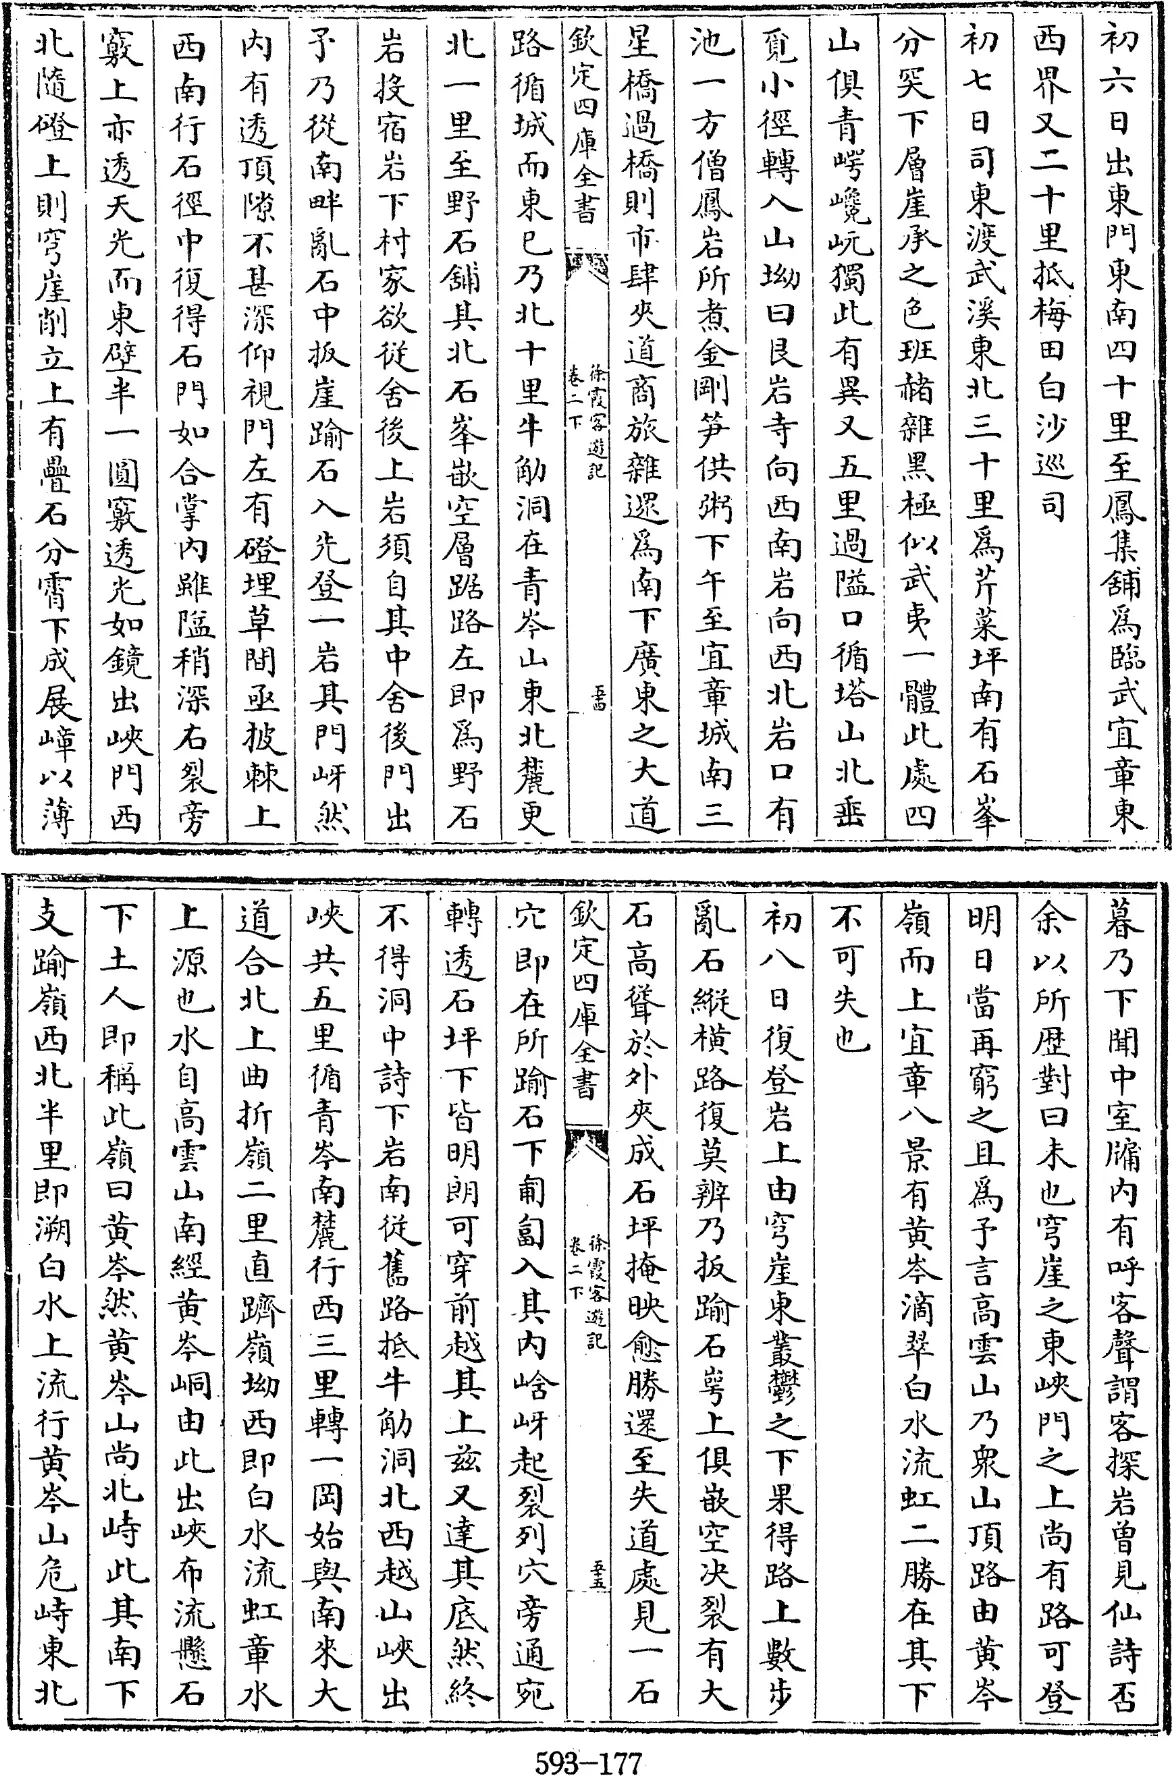 初六日出東門東南四十里至鳳集舖爲臨武宜章東
西界又二十里抵梅田白沙巡司
初七日司東渡武溪東北三十里爲芹菜坪南有石峯
分突下層崖承之色班赭雜黑極似武夷一體此處四
山俱青崿巉岏獨此有異又五里過隘口循塔山北垂
覓小徑轉入山坳曰艮岩寺向西南岩向西北岩口有
池一方僧鳳岩所煮金剛笋供粥下午至宜章城南三
星橋過橋則市肆夾道商旅雜遝爲南下廣東之大道
欽定四庫全書
徐霞客遊記
卷二下
五十四
路循城而東已乃北十里牛觔洞在青岑山東北麓更
北一里至野石舖其北石峯嵌空層踞路左即爲野石
岩投宿岩下村家欲從舍後上岩須自其中舍後門出
予乃從南畔亂石中扳崖踰石入先登一岩其門岈然
内有透頂隙不甚深仰視門左有磴埋草間亟披棘上
西南行石徑中復得石門如合掌内雖隘稍深右裂旁
竅上亦透天光而東壁半一圓竅透光如鏡出峽門西
北隨磴上則穹崖削立上有疊石分霄下成展嶂以薄
暮乃下聞中室牖内有呼客聲謂客探岩曾見仙詩否
余以所歷對曰未也穹崖之東峽門之上尚有路可登
明日當再窮之且爲予言高雲山乃衆山頂路由黄岑
嶺而上宜章八景有黄岑滴翠白水流虹二勝在其下
不可失也
初八日復登岩上由穹崖東叢鬱之下果得路上數步
亂石縱橫路復莫辨乃扳踰石崿上俱嵌空决裂有大
石高聳於外夾成石坪掩映愈勝還至失道處見一石
欽定四庫全書
徐霞客遊記
卷二下
五十五
穴即在所踰石下匍匐入其内崡岈起裂列穴旁通宛
轉透石坪下皆明朗可穿前越其上兹又達其底然終
不得洞中詩下岩南從舊路抵牛觔洞北西越山峽出
峽共五里循青岑南麓行西三里轉一岡始與南來大
道合北上曲折嶺二里直躋嶺坳西即白水流虹章水
上源也水自高雲山南經黄岑峒由此出峽布流懸石
下土人即稱此嶺曰黄岑然黄岑山尚北峙此其南下
支踰嶺西北半里即溯白水上流行黄岑山危峙東北
593-177